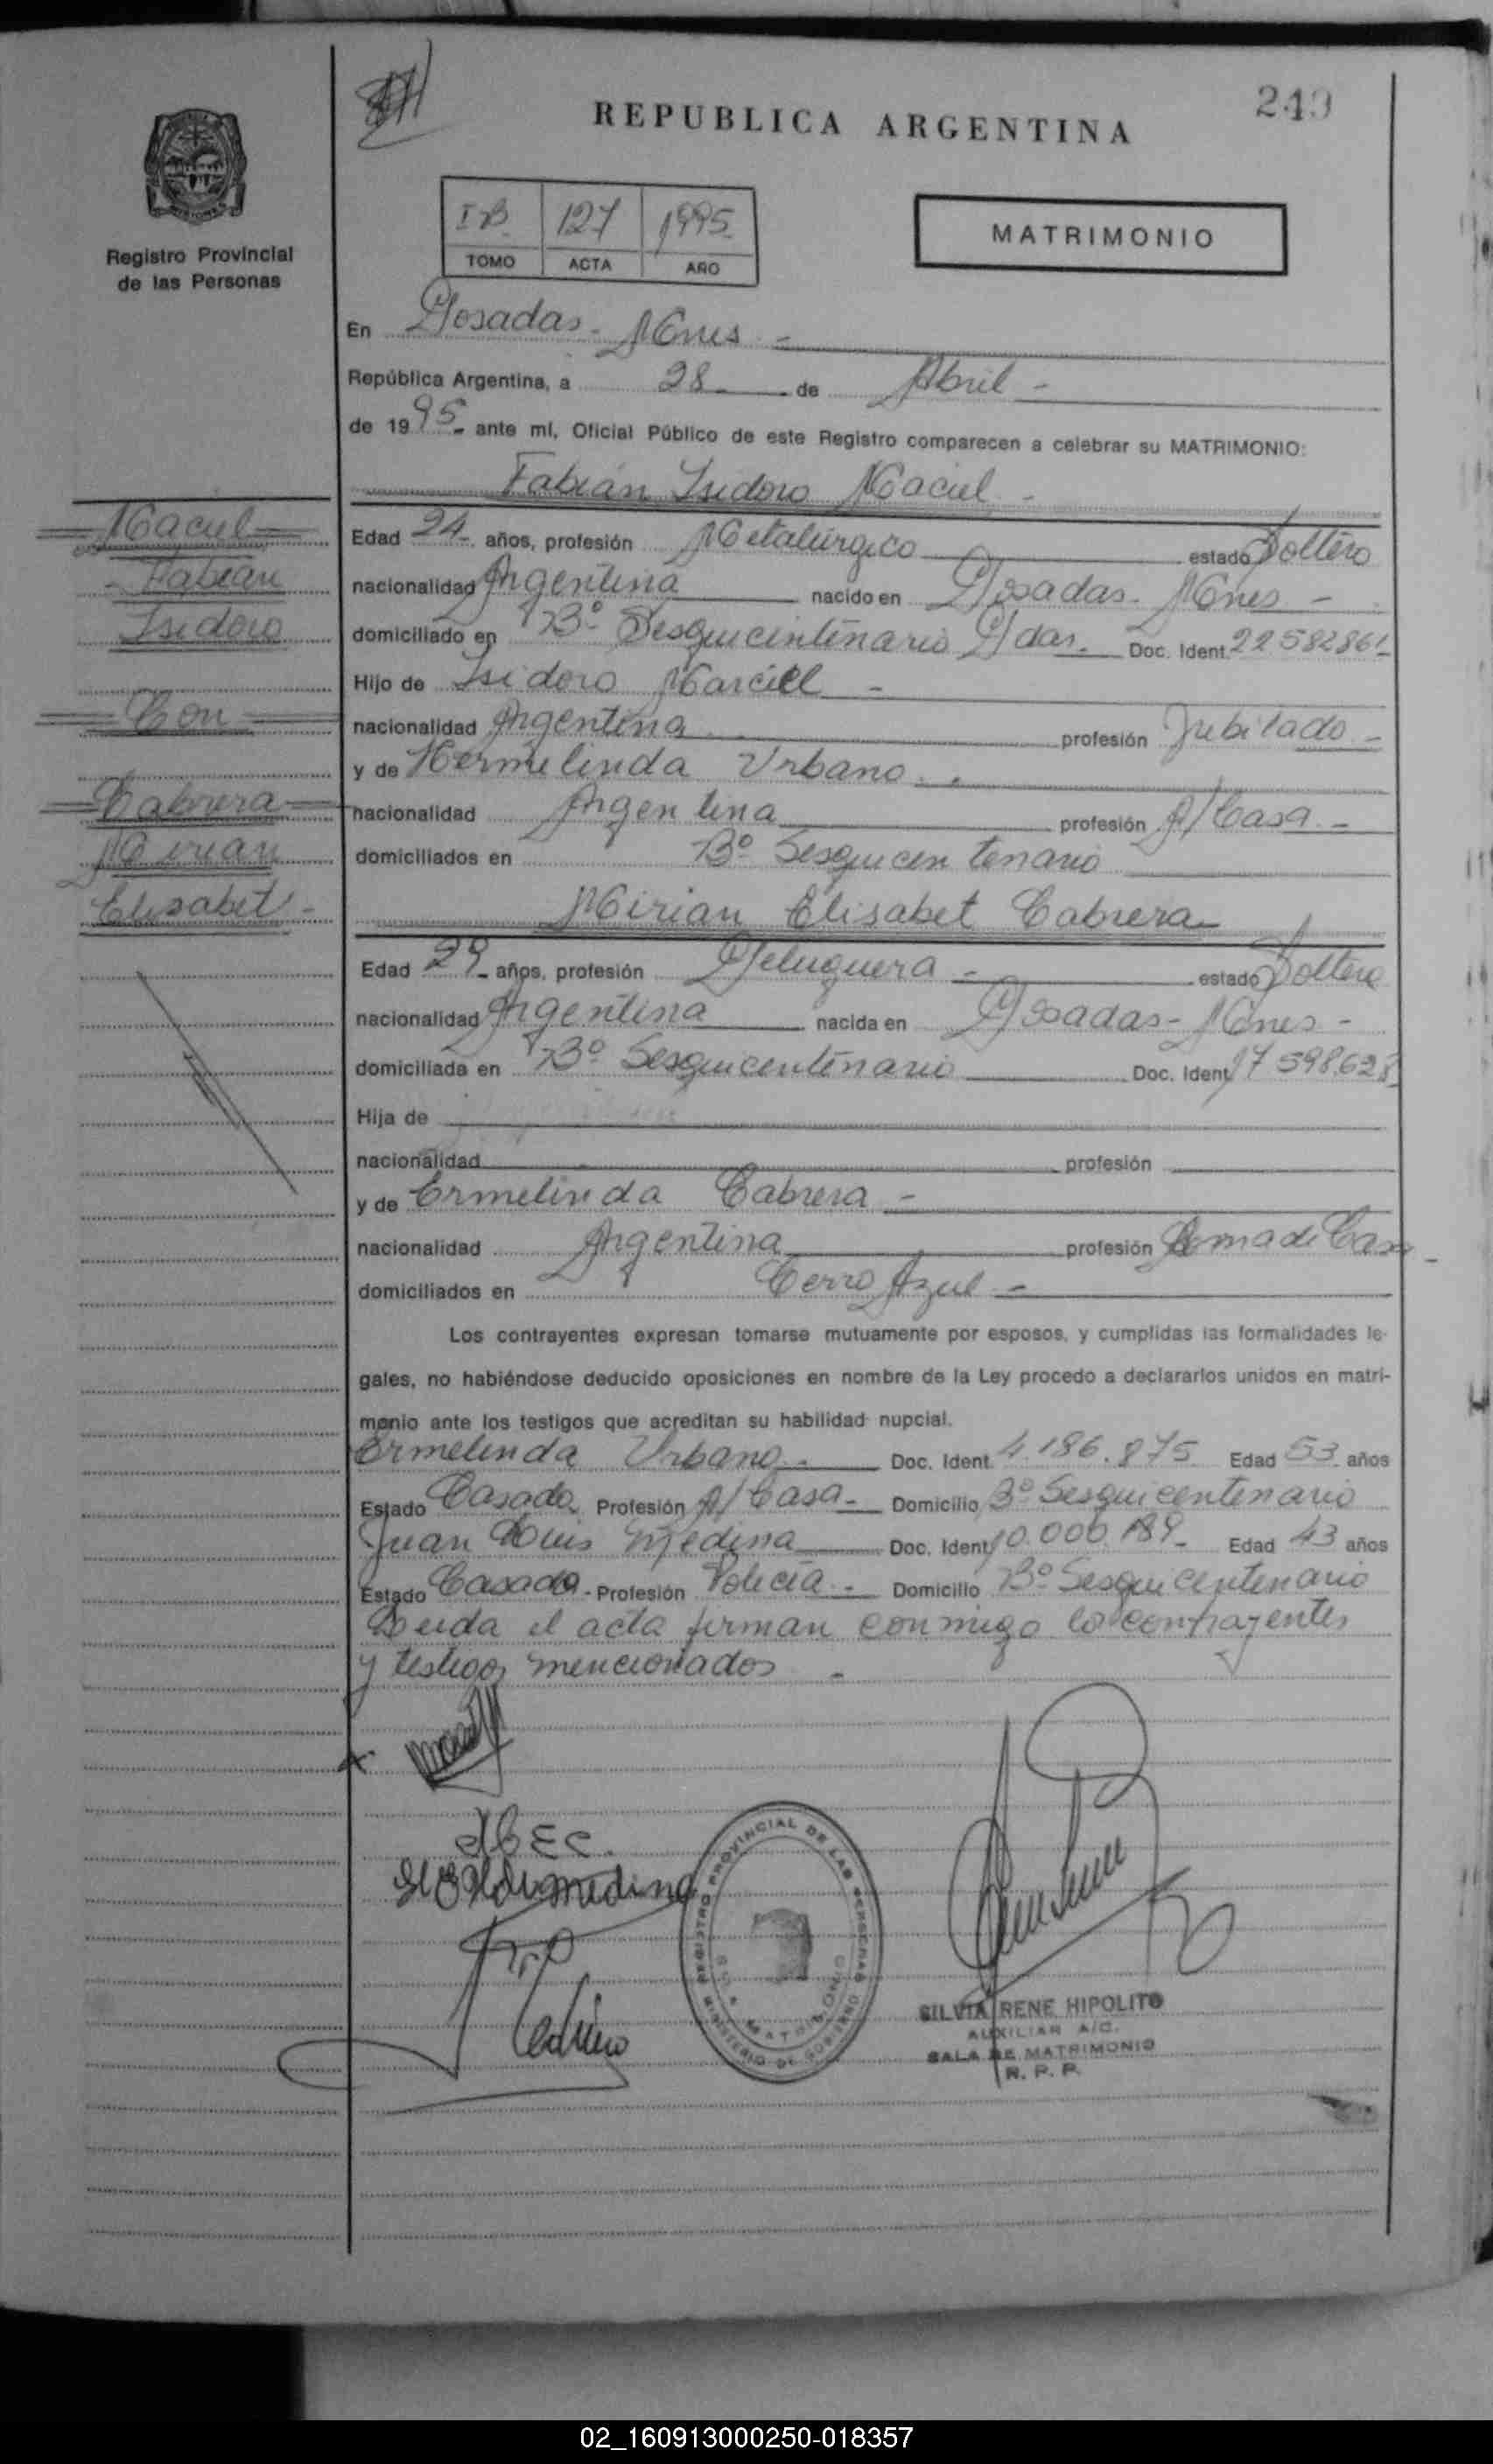 REPUBLICA ARGENTINA
249
Registro Provincial
de las Personas
IB 127 1995
TOMO ACTA AÑO
MATRIMONIO
En Posadas - Mnes -
República Argentina, a 28 de Abril -
de 1995 ante mí, Oficial Público de este Registro comparecen a celebrar su MATRIMONIO:
Fabián Isidoro Maciel -
Maciel
Fabian
Isidoro
Con
Cabrera
Mirian
Elisabet -
Edad 24 años, profesión Metalúrgico estado Soltero
nacionalidad Argentina nacido en Posadas - Mnes -
domiciliado en Bº Sesquicentenario Pdas. Doc. Ident. 22582861
Hijo de Isidoro Marciel -
nacionalidad Argentina profesión Jubilado -
y de Hermelinda Urbano.
nacionalidad Argentina profesión A/ Casa -
domiciliados en Bº Sesquicentenario
Mirian Elisabet Cabrera
Edad 29 años, profesión Peluquera - estado Soltera
nacionalidad Argentina nacida en Posadas - Mnes -
domiciliada en Bº Sesquicentenario Doc. Ident. 17598.628
Hija de
nacionalidad profesión
y de Ermelinda Cabrera -
nacionalidad Argentina profesión Ama de Casa -
domiciliados en Cerro Azul -
Los contrayentes expresan tomarse mutuamente por esposos, y cumplidas las formalidades le-
gales, no habiéndose deducido oposiciones en nombre de la Ley procedo a declararlos unidos en matri-
monio ante los testigos que acreditan su habilidad nupcial.
Ermelinda Urbano - Doc. Ident. 4.186.875 Edad 53 años
Estado Casada Profesión A/ Casa - Domicilio Bº Sesquicentenario
Juan Luis Medina Doc. Ident. 10.000.189 - Edad 43 años
Estado Casado - Profesión Policía - Domicilio Bº Sesquicentenario
Leida el acta firman conmigo los contrayentes
y testigos mencionados -
REGISTRO PROVINCIAL DE LAS PERSONAS
MINISTERIO DE GOBIERNO
SALA MATRIMONIO
SILVIA RENE HIPOLITO
AUXILIAR A/C.
SALA DE MATRIMONIO
R. P. P.
02_160913000250-018357